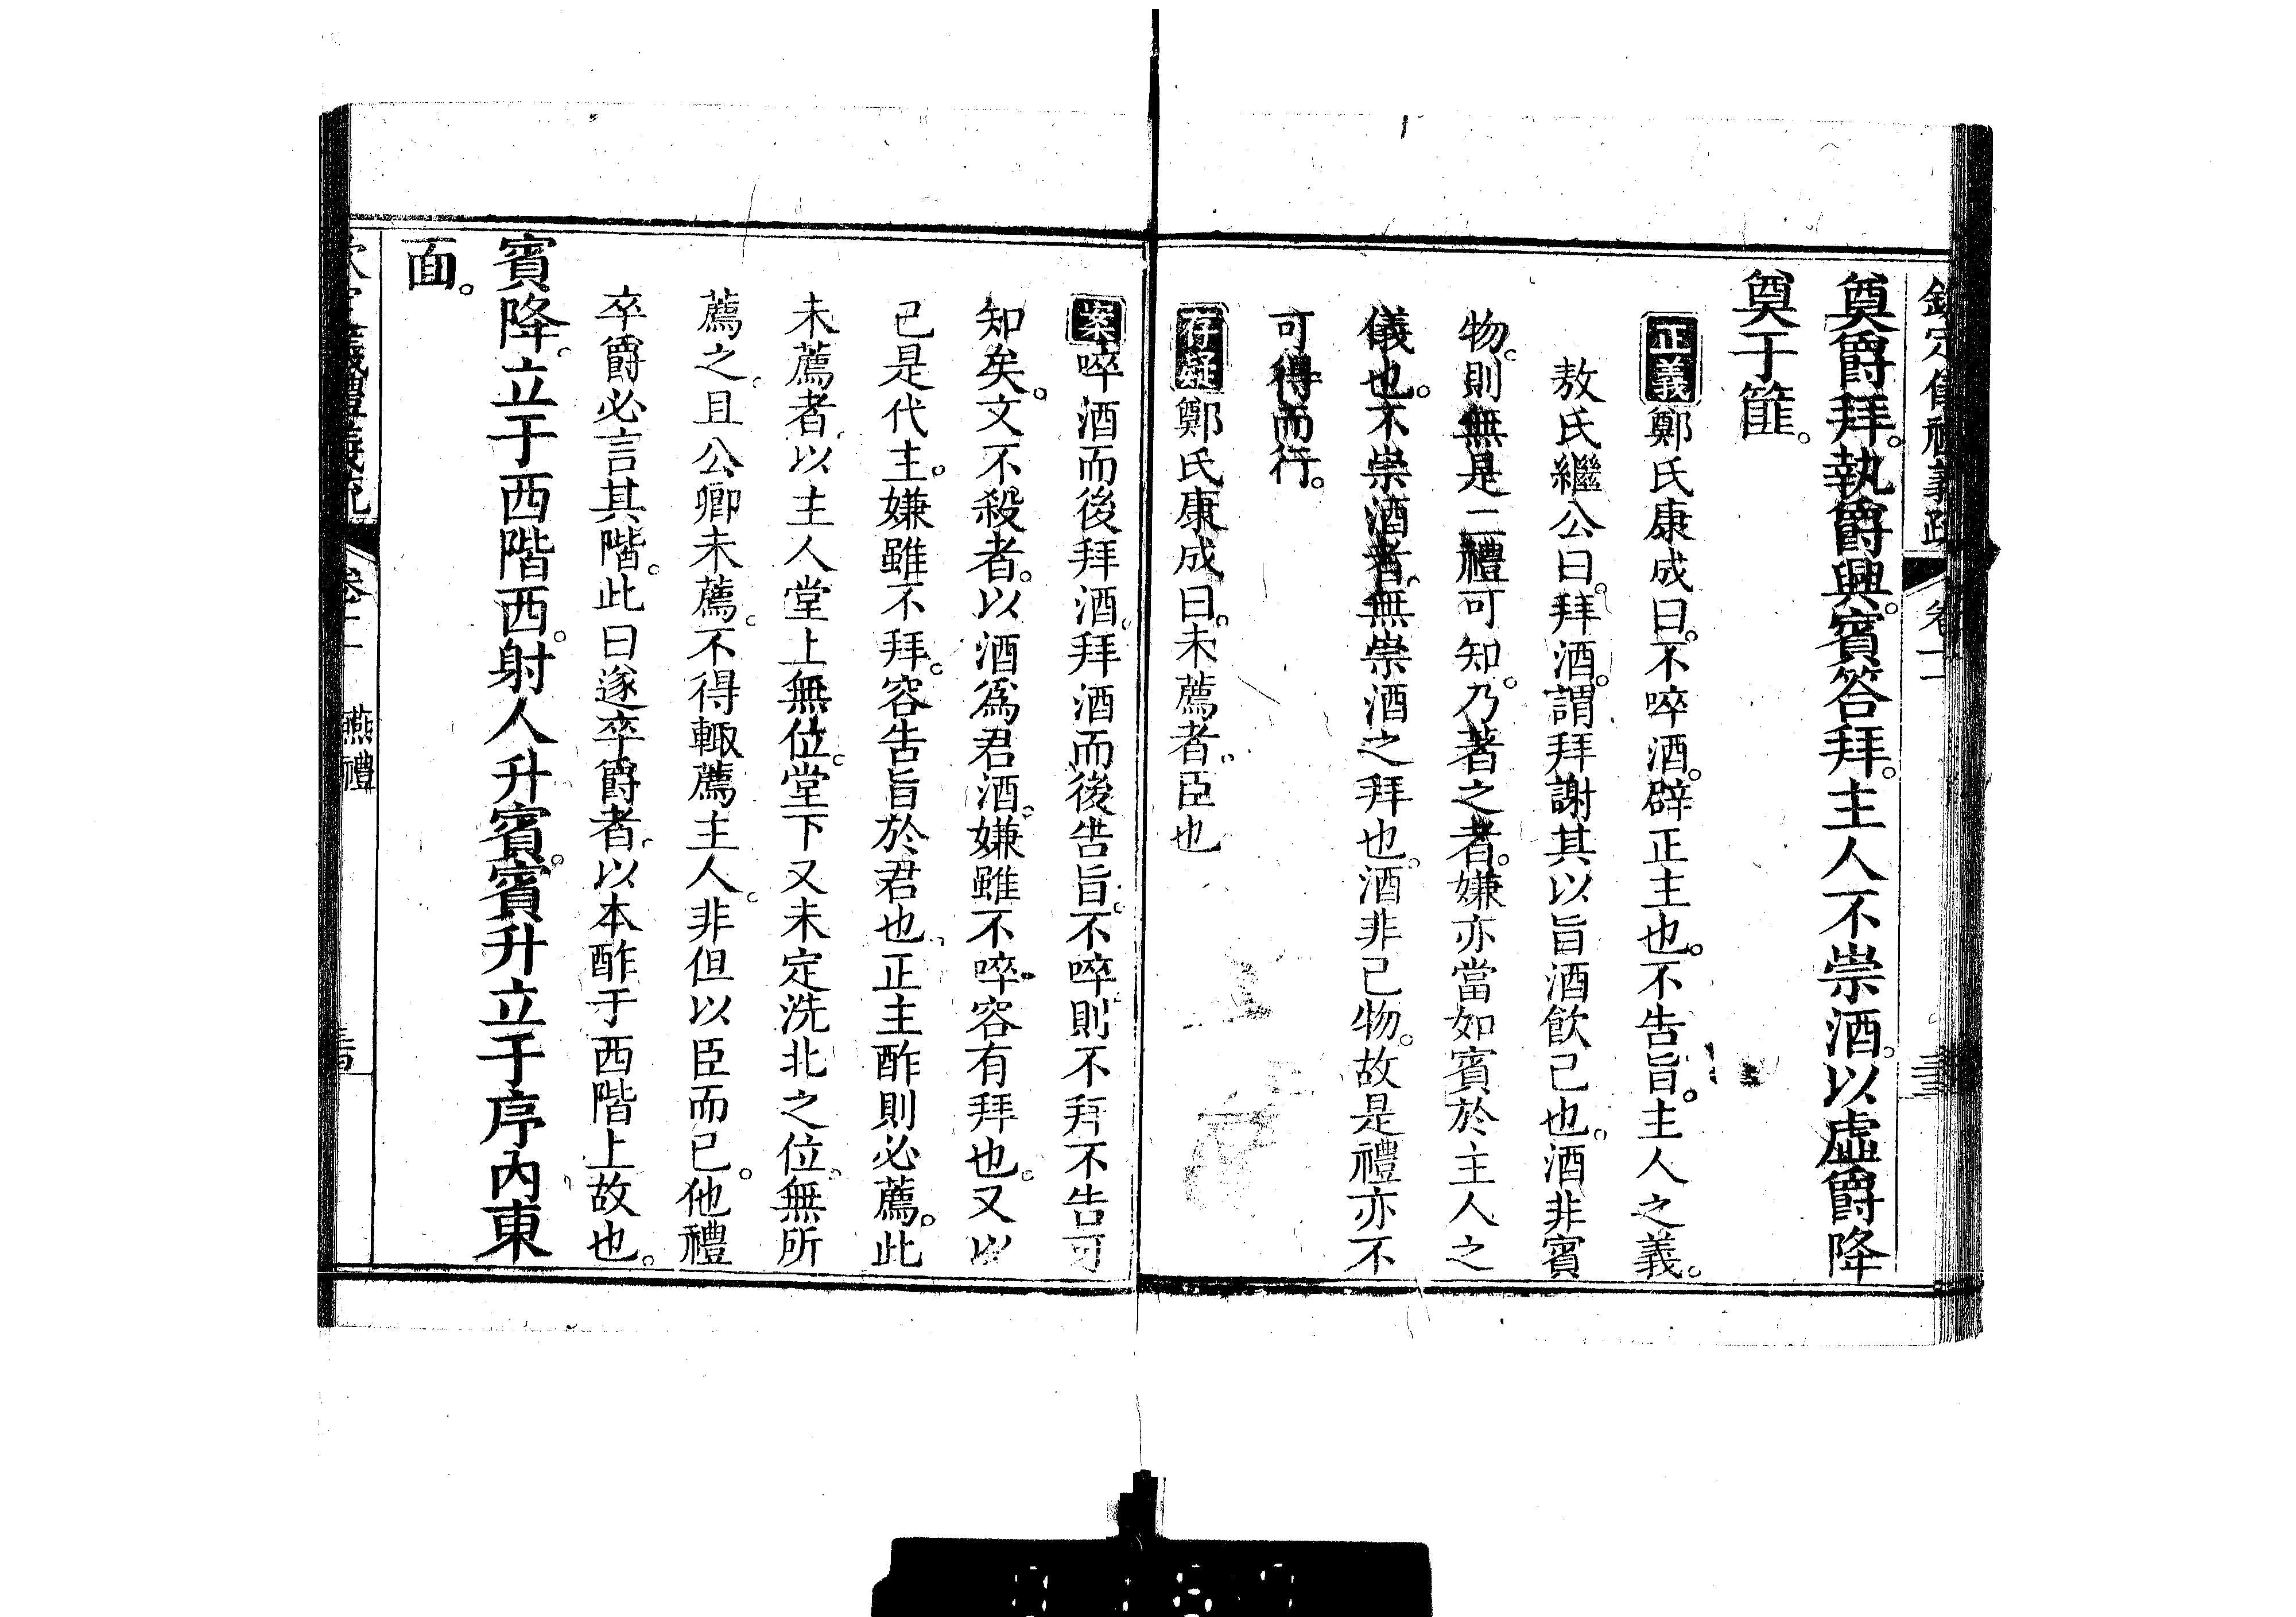 奠爵拜。執爵興。賓答拜。主人不崇酒。以虛爵降
奠于篚。
正義鄭氏康成曰。不啐酒。辟正主也。不告旨。主人之義。
敖氏繼公曰。拜酒。謂拜謝其以旨酒飲己也。酒非賓
物。則無是二禮可知。乃著之者。嫌亦當如賓於主人之
儀也。不崇酒者。無崇酒之拜也。酒非己物。故是禮亦不
可得而行。
存疑鄭氏康成曰。未薦者。臣也
案啐酒而後拜酒。拜酒而後告旨。不啐則不拜不告可
知矣。文不殺者。以酒爲君酒。嫌雖不啐。容有拜也。又以
已是代主。嫌雖不拜。容告旨於君也。正主酢則必薦。此
未薦者。以主人堂上無位。堂下又未定洗北之位。無所
薦之。且公卿未薦。不得輙薦主人。非但以臣而已。他禮
卒爵必言其階。此曰遂卒爵者。以本酢于西階上故也。
賓降。立于西階西。射人升賓。賓升立于序內東
面。
義禮義疏 卷十二 燕禮